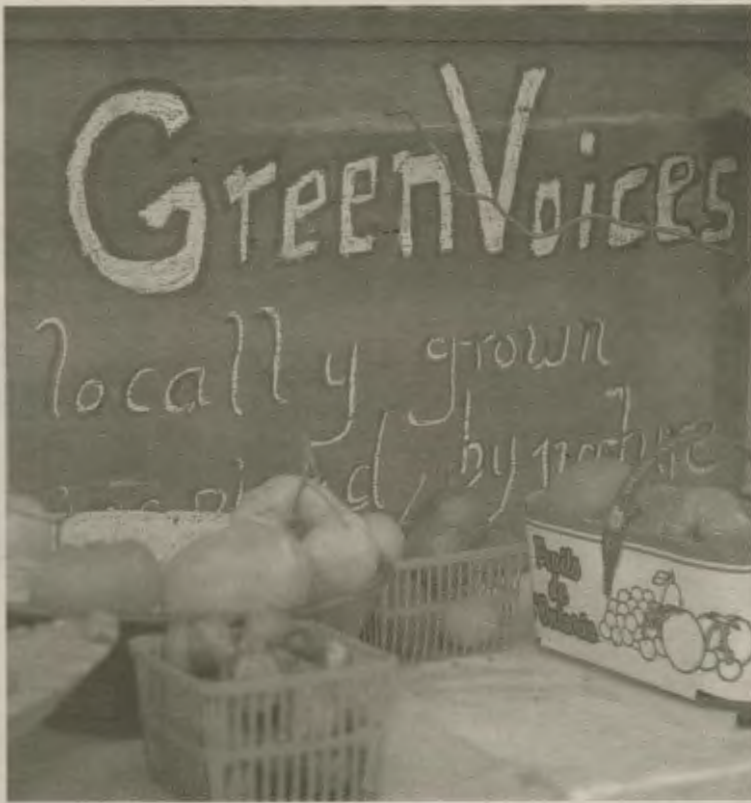 GreenVoices
locally grown
by nature
Fruits
de